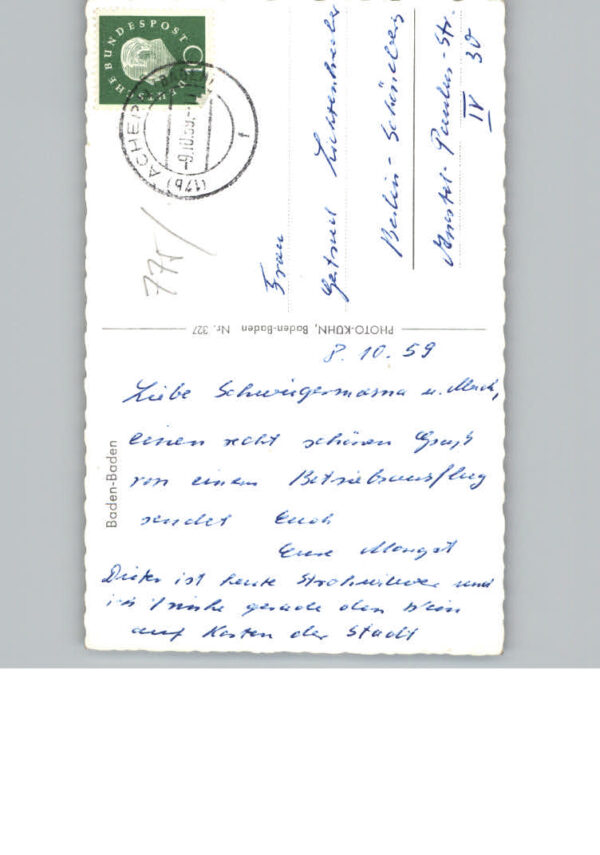 DEUTSCHE BUNDESPOST
(17b) ACHERN
-9.10.59.-
f
775/
Frau
Gertrud
Berlin-Schöneberg
Str. 30
IV
PHOTO-KÜHN, Baden-Baden Nr. 327
Baden-Baden
8. 10. 59
Liebe Schwiegermama u.
einen recht schönen Gruß
von einem Betriebsausflug
sendet Euch
Eure
Dieter ist heute Strohwitwer und
ich trinke gerade den Wein
auf Kosten der Stadt